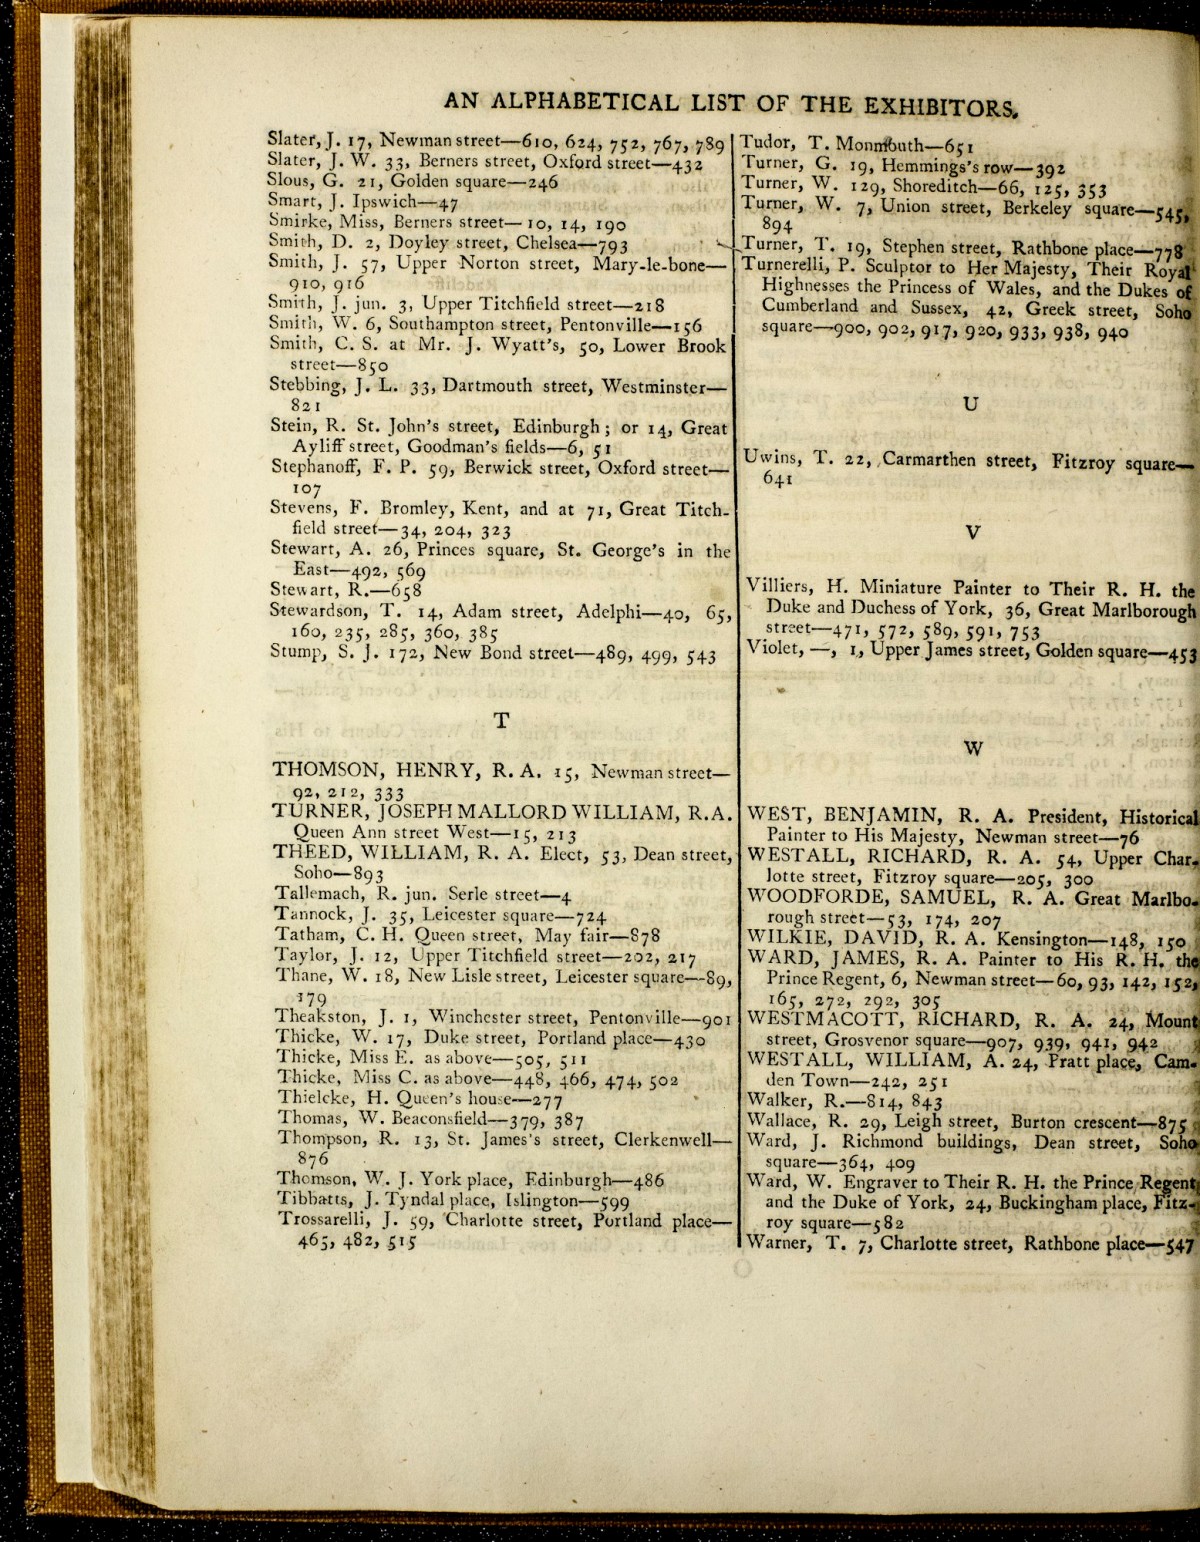 AN ALPHABETICAL LIST OF THE EXHIBITORS.
Slater, J. 17, Newman street—610, 624, 752, 767, 789
Slater, J. W. 33, Berners street, Oxford street—432
Slous, G. 21, Golden square—246
Smart, J. Ipswich—47
Smirke, Miss, Berners street—10, 14, 190
Smith, D. 2, Doyley street, Chelsea—793
Smith, J. 57, Upper Norton street, Mary-le-bone—
910, 916
Smith, J. jun. 3, Upper Titchfield street—218
Smith, W. 6, Southampton street, Pentonville—156
Smith, C. S. at Mr. J. Wyatt's, 50, Lower Brook
street—850
Stebbing, J. L. 33, Dartmouth street, Westminster—
821
Stein, R. St. John's street, Edinburgh; or 14, Great
Ayliff street, Goodman's fields—6, 51
Stephanoff, F. P. 59, Berwick street, Oxford street—
107
Stevens, F. Bromley, Kent, and at 71, Great Titch-
field street—34, 204, 323
Stewart, A. 26, Princes square, St. George's in the
East—492, 569
Stewart, R.—658
Stewardson, T. 14, Adam street, Adelphi—40, 65,
160, 235, 285, 360, 385
Stump, S. J. 172, New Bond street—489, 499, 543
T
THOMSON, HENRY, R. A. 15, Newman street—
92, 212, 333
TURNER, JOSEPH MALLORD WILLIAM, R.A.
Queen Ann street West—15, 213
THEED, WILLIAM, R. A. Elect, 53, Dean street,
Soho—893
Tallemach, R. jun. Serle street—4
Tannock, J. 35, Leicester square—724
Tatham, C. H. Queen street, May fair—878
Taylor, J. 12, Upper Titchfield street—202, 217
Thane, W. 18, New Lisle street, Leicester square—89,
179
Theakston, J. 1, Winchester street, Pentonville—901
Thicke, W. 17, Duke street, Portland place—430
Thicke, Miss E. as above—505, 511
Thicke, Miss C. as above—448, 466, 474, 502
Thielcke, H. Queen's house—277
Thomas, W. Beaconsfield—379, 387
Thompson, R. 13, St. James's street, Clerkenwell—
876
Thomson, W. J. York place, Edinburgh—486
Tibbatts, J. Tyndal place, Islington—599
Trossarelli, J. 59, Charlotte street, Portland place—
465, 482, 515
Tudor, T. Monmouth—651
Turner, G. 19, Hemmings's row—392
Turner, W. 129, Shoreditch—66, 125, 353
Turner, W. 7, Union street, Berkeley square—545,
894
Turner, T. 19, Stephen street, Rathbone place—778
Turnerelli, P. Sculptor to Her Majesty, Their Royal
Highnesses the Princess of Wales, and the Dukes of
Cumberland and Sussex, 42, Greek street, Soho
square—900, 902, 917, 920, 933, 938, 940
U
Uwins, T. 22, Carmarthen street, Fitzroy square—
641
V
Villiers, H. Miniature Painter to Their R. H. the
Duke and Duchess of York, 36, Great Marlborough
street—471, 572, 589, 591, 753
Violet, —, 1, Upper James street, Golden square—453
W
WEST, BENJAMIN, R. A. President, Historical
Painter to His Majesty, Newman street—76
WESTALL, RICHARD, R. A. 54, Upper Char-
lotte street, Fitzroy square—205, 300
WOODFORDE, SAMUEL, R. A. Great Marlbo-
rough street—53, 174, 207
WILKIE, DAVID, R. A. Kensington—148, 150
WARD, JAMES, R. A. Painter to His R. H. the
Prince Regent, 6, Newman street—60, 93, 142, 152,
165, 272, 292, 305
WESTMACOTT, RICHARD, R. A. 24, Mount
street, Grosvenor square—907, 939, 941, 942
WESTALL, WILLIAM, A. 24, Pratt place, Cam-
den Town—242, 251
Walker, R.—814, 843
Wallace, R. 29, Leigh street, Burton crescent—875
Ward, J. Richmond buildings, Dean street, Soho
square—364, 409
Ward, W. Engraver to Their R. H. the Prince Regent
and the Duke of York, 24, Buckingham place, Fitz-
roy square—582
Warner, T. 7, Charlotte street, Rathbone place—547